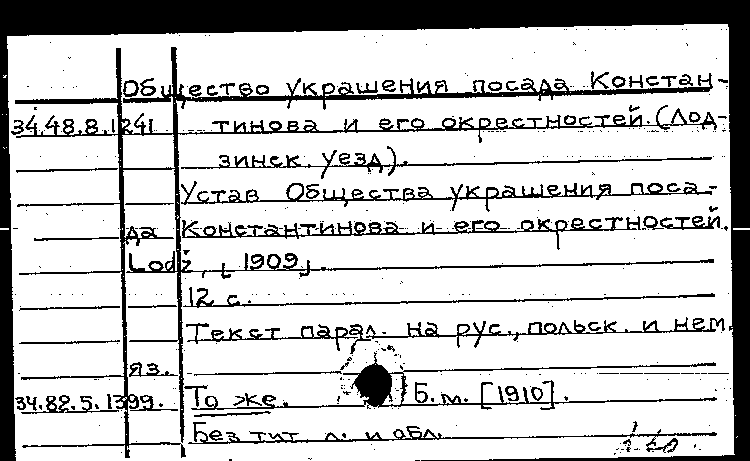 Общество украшения посада Констан-
34.48.8.1241 тинова и его окрестностей. (Лод-
зинск. уезд).
Устав Общества украшения поса-
да Константинова и его окрестностей.
Lodż, [1909].
12 с.
Текст парал. на рус., польск. и нем.
яз.
34.82.5.1399. То же. Б.м. [1910].
Без тит. л. и обл.